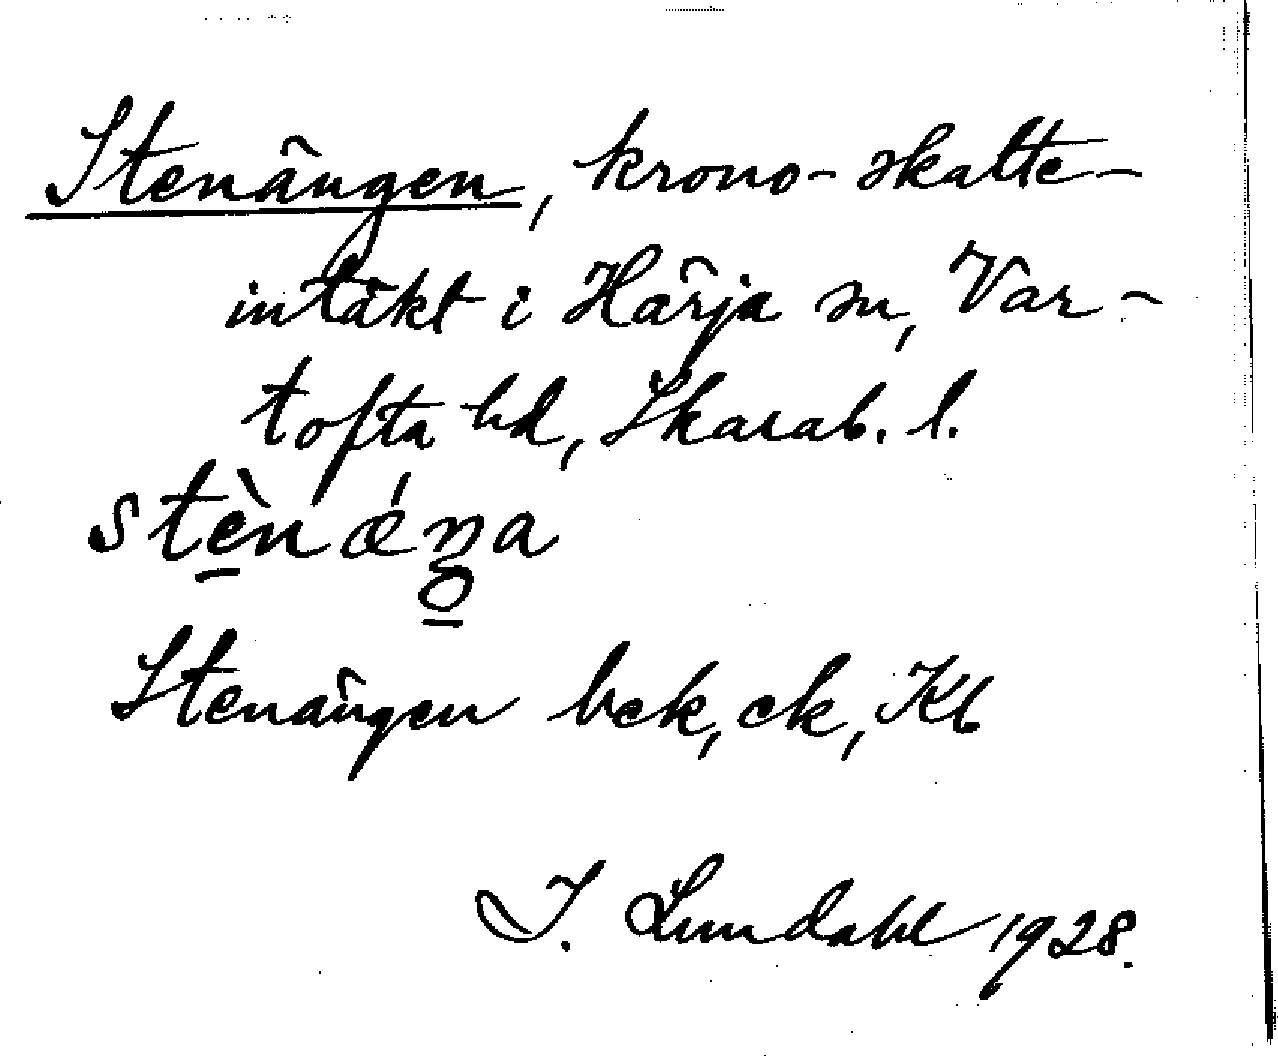 Stenängen, krono-skatte-
intäkt i Härja sn, Var-
tofta hd, Skarab. l.
stènǽŋa
Stenängen bck, ck, Kb
I. Lundahl 1928.